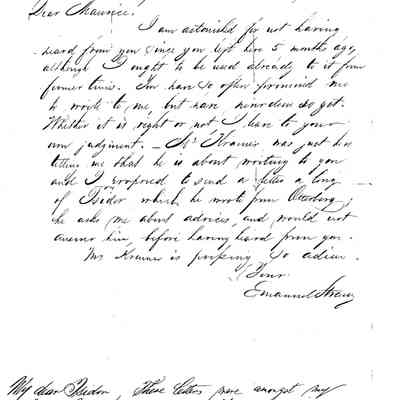 Dear Maurice.
I am astonished for not having
heard from you since you left here 5 months ago,
although I ought to be used already to it from
former times. You have so often promised me
to wrote to me, but have never done so yet.
Whether it is right or not I leave to your
own judgment. — Mr Kramer was just here
telling me that he is about writing to you
and I proposed to send a letter along
of Isidor which he wrote from Otterberg;
he asks me about advices, and would not
answer him, before having heard from you.
Mr Kramer is parking so adieu.
Your
Emanuel
My dear Isidor, These letters were amongst my